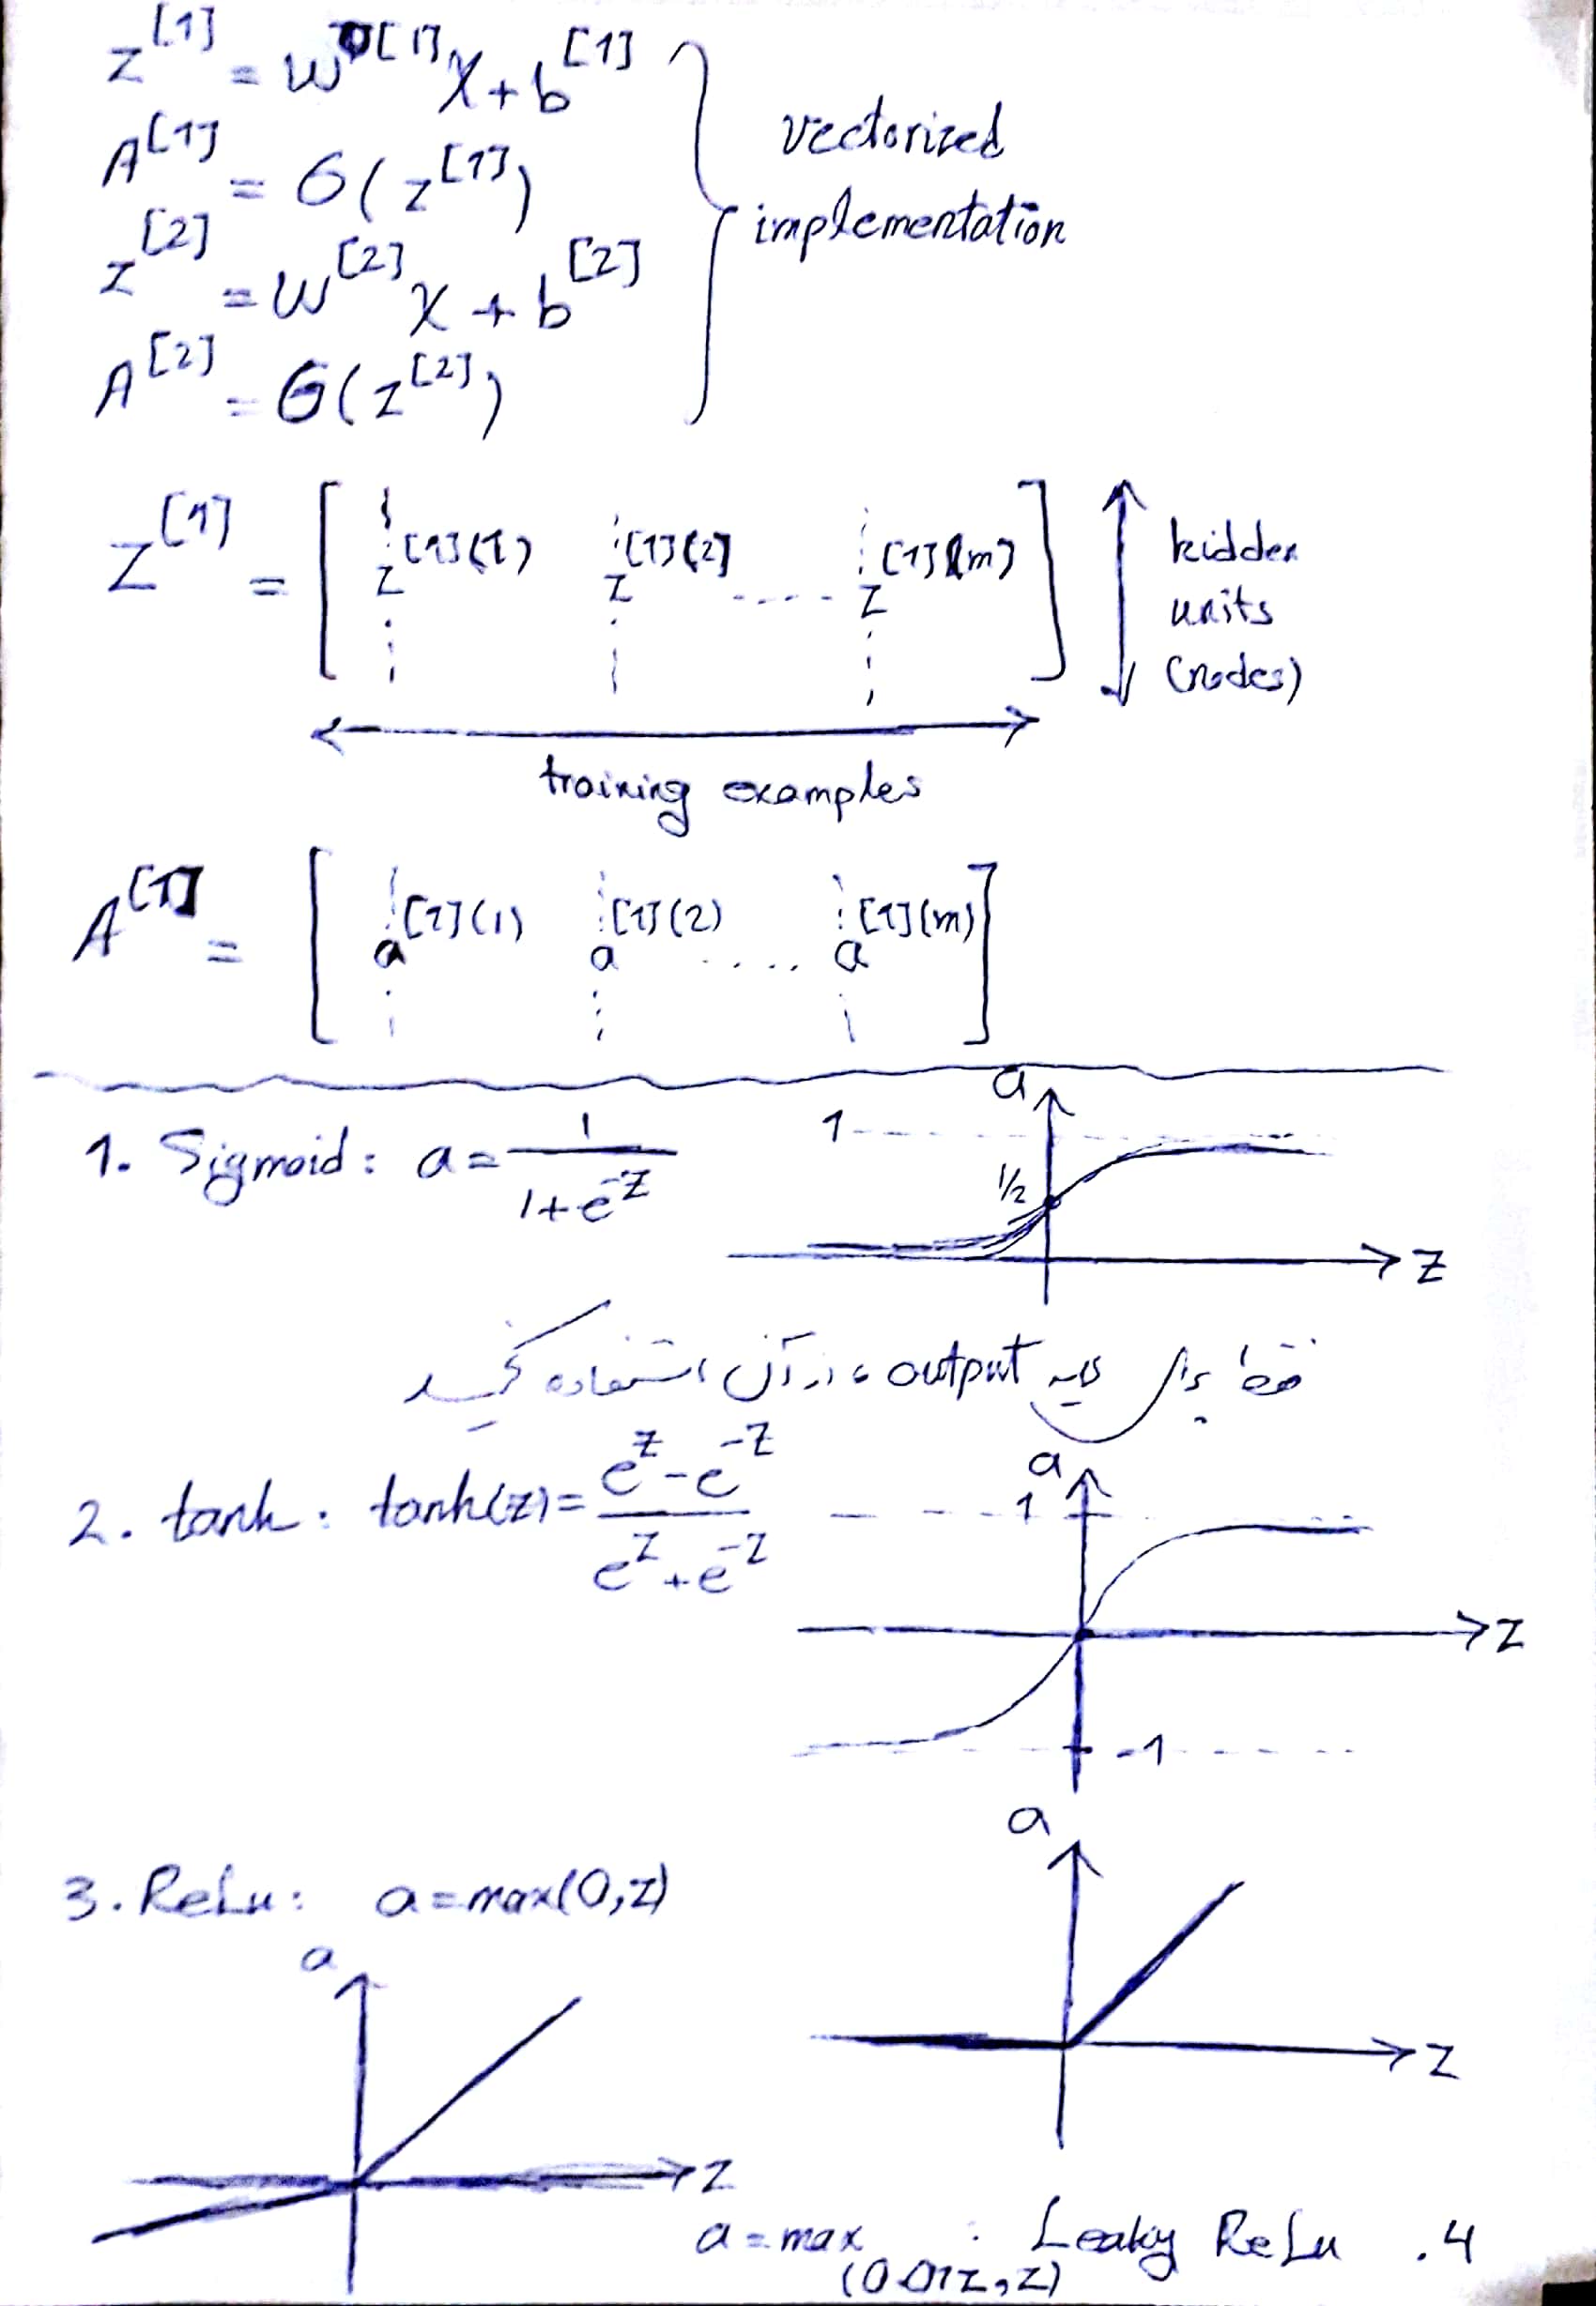 z[1] = w[1]X + b[1]
A[1] = σ(z[1])
vectorized
implementation
z[2] = w[2]X + b[2]
A[2] = σ(z[2])
Z[1] = [ z[1](1) z[1](2) .... z[1](m) ]
hidden
units
(nodes)
training examples
A[1] = [ a[1](1) a[1](2) .... a[1](m) ]
1. Sigmoid: a = 1/(1+e^-z)
a
1
1/2
z
فقط برای لایه output از آن استفاده کنید
2. tanh: tanh(z) = (e^z - e^-z)/(e^z + e^-z)
a
1
z
-1
3. ReLu: a = max(0,z)
a
z
a
z
4. Leaky ReLu : a = max(0.01z, z)